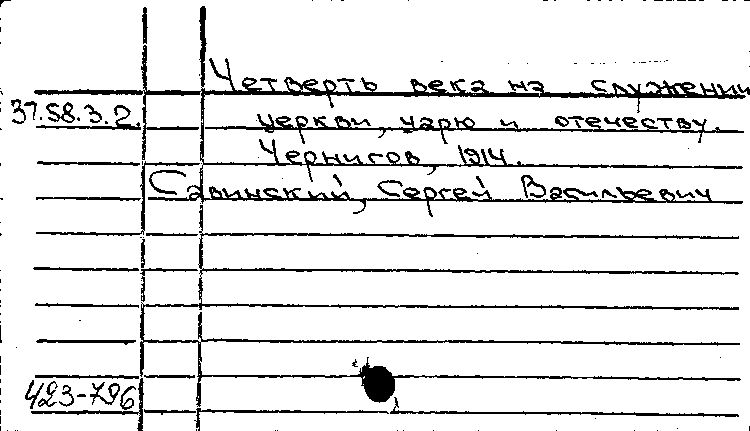 Четверть века на служении
37.58.3.2. церкви, царю и отечеству.
Чернигов, 1914.
Савинский, Сергей Васильевич
423-796